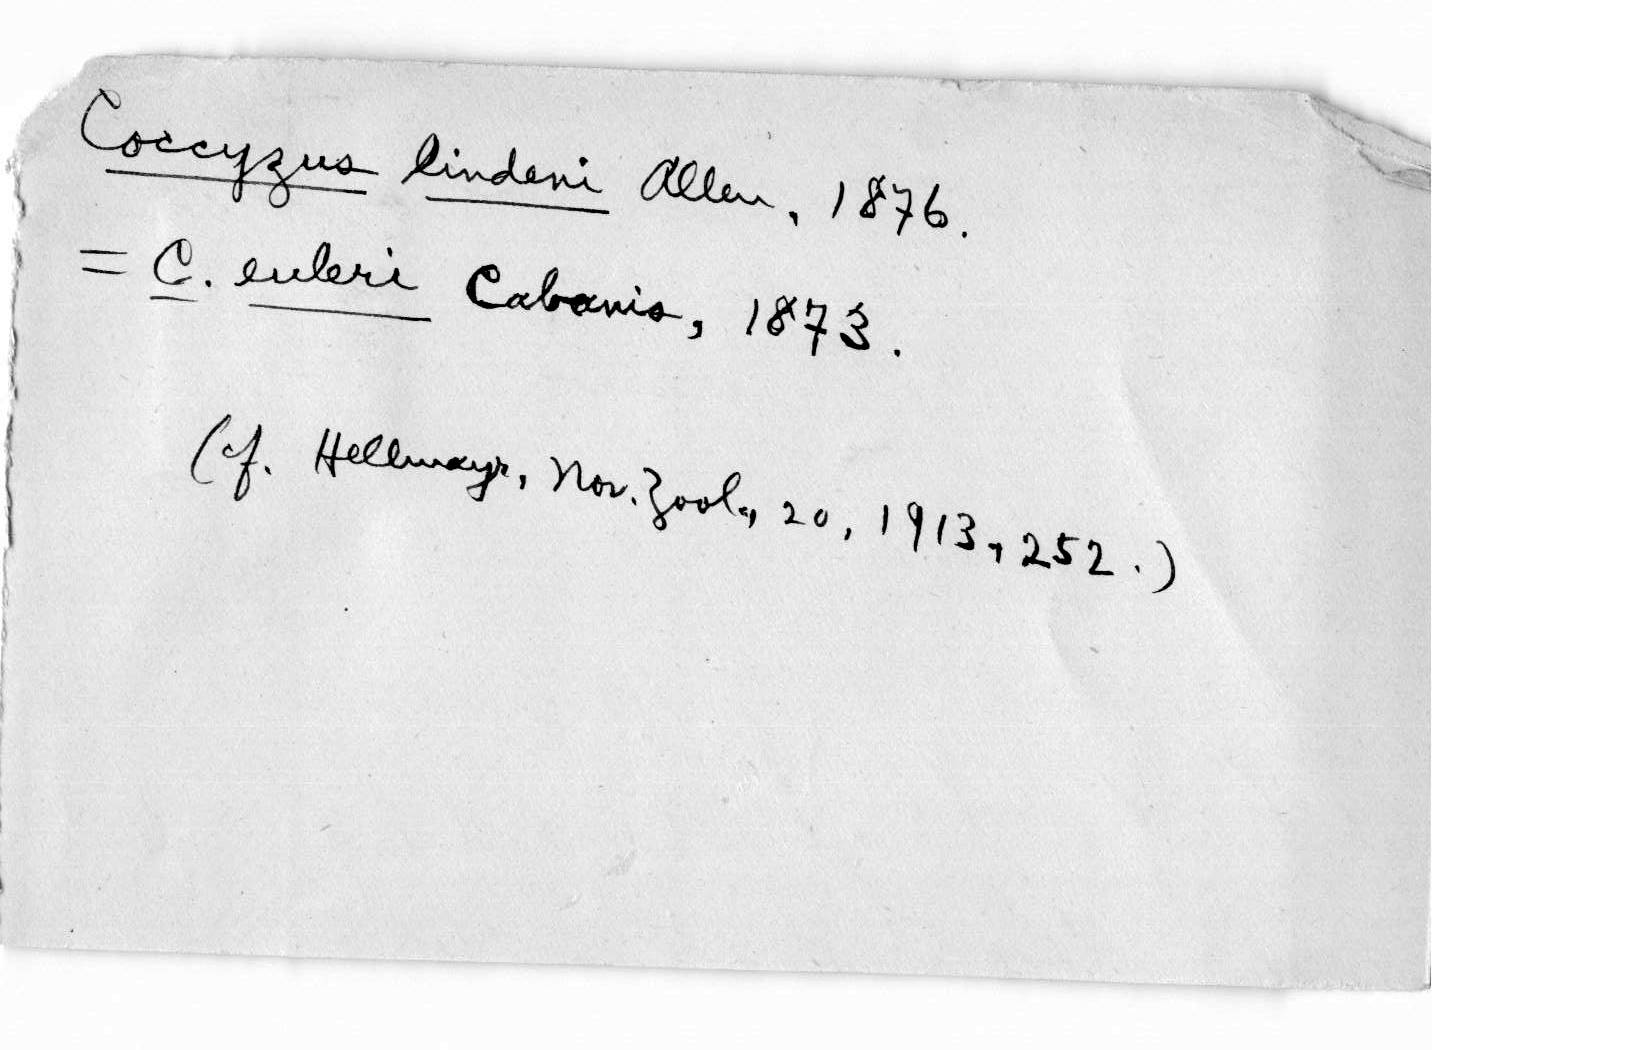 Coccyzus lindeni Allen, 1876.
= C. euleri Cabanis, 1873.
(cf. Hellmayr, Nov. Zool., 20, 1913, 252.)